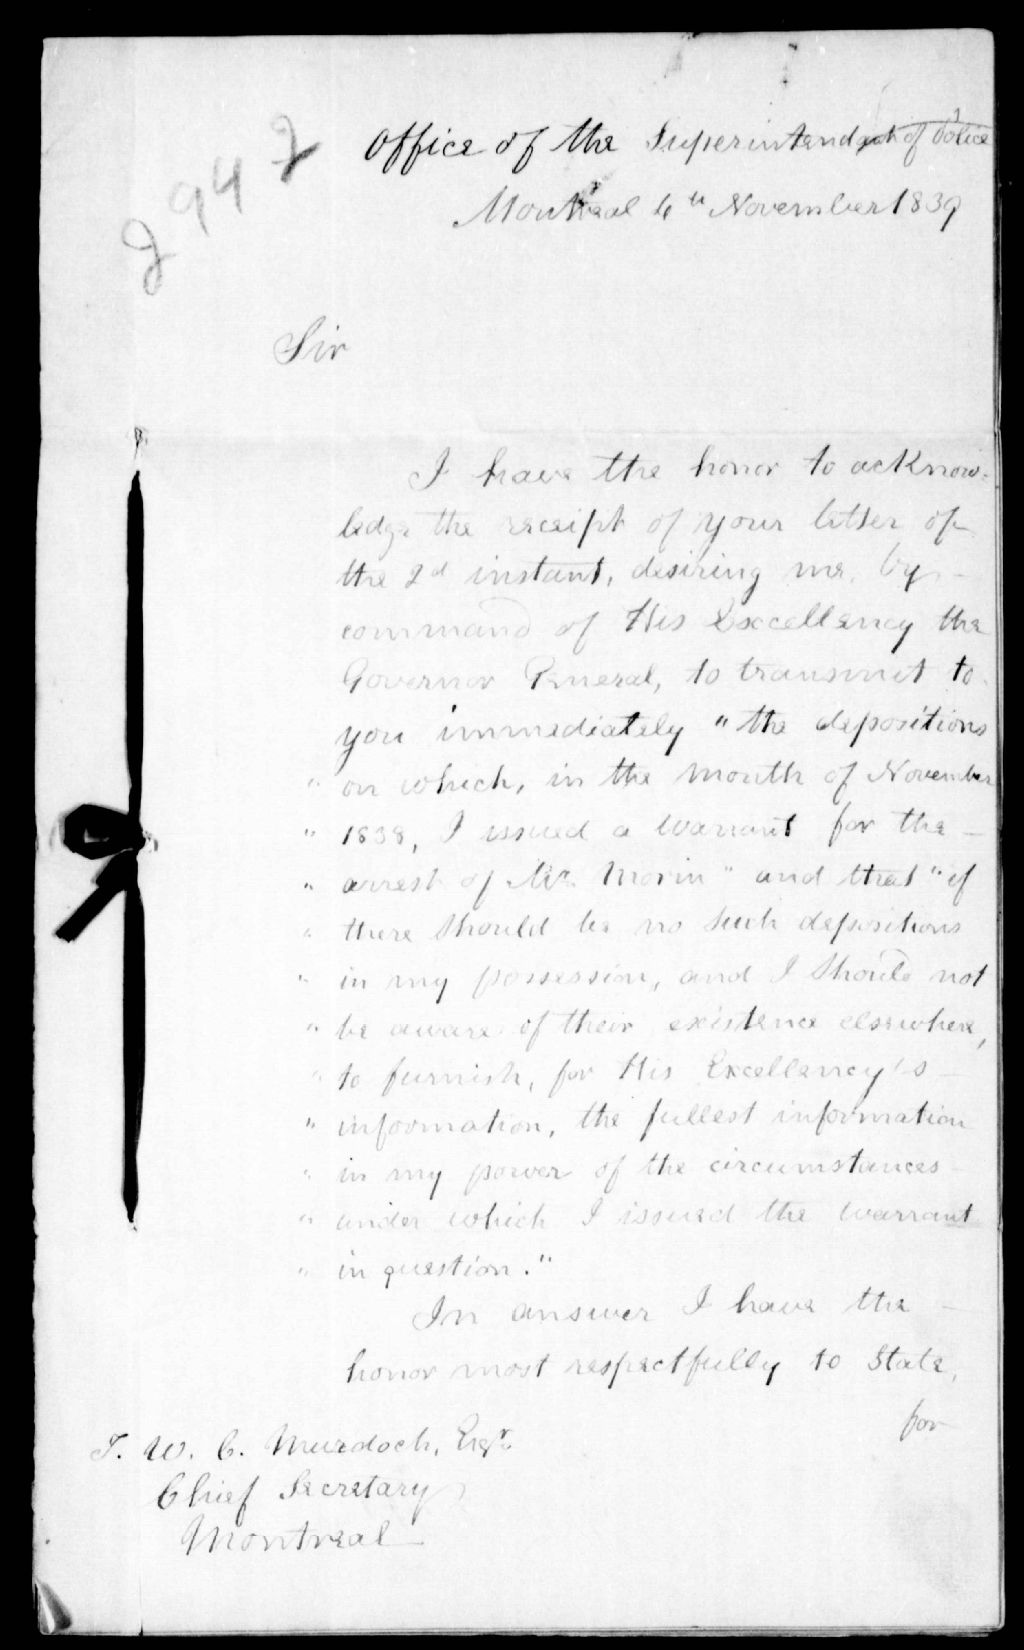 2942
Office of the Superintendent of Police
Montreal 4th November 1839
Sir
I have the honor to acknow=
ledge the receipt of your letter of
the 2d instant, desiring me, by
command of His Excellency the
Governor General, to transmit to
you immediately "the depositions
" on which, in the month of November
" 1838, I issued a warrant for the
" arrest of Mr. Morin" and that "if
" there should be no such depositions
" in my possession, and I should not
" be aware of their existence elsewhere,
" to furnish, for His Excellency's
" information, the fullest information
" in my power of the circumstances
" under which I issued the warrant
" in question."
In answer I have the
honor most respectfully to state,
for
T. W. C. Murdoch, Esqr.
Chief Secretary
Montreal